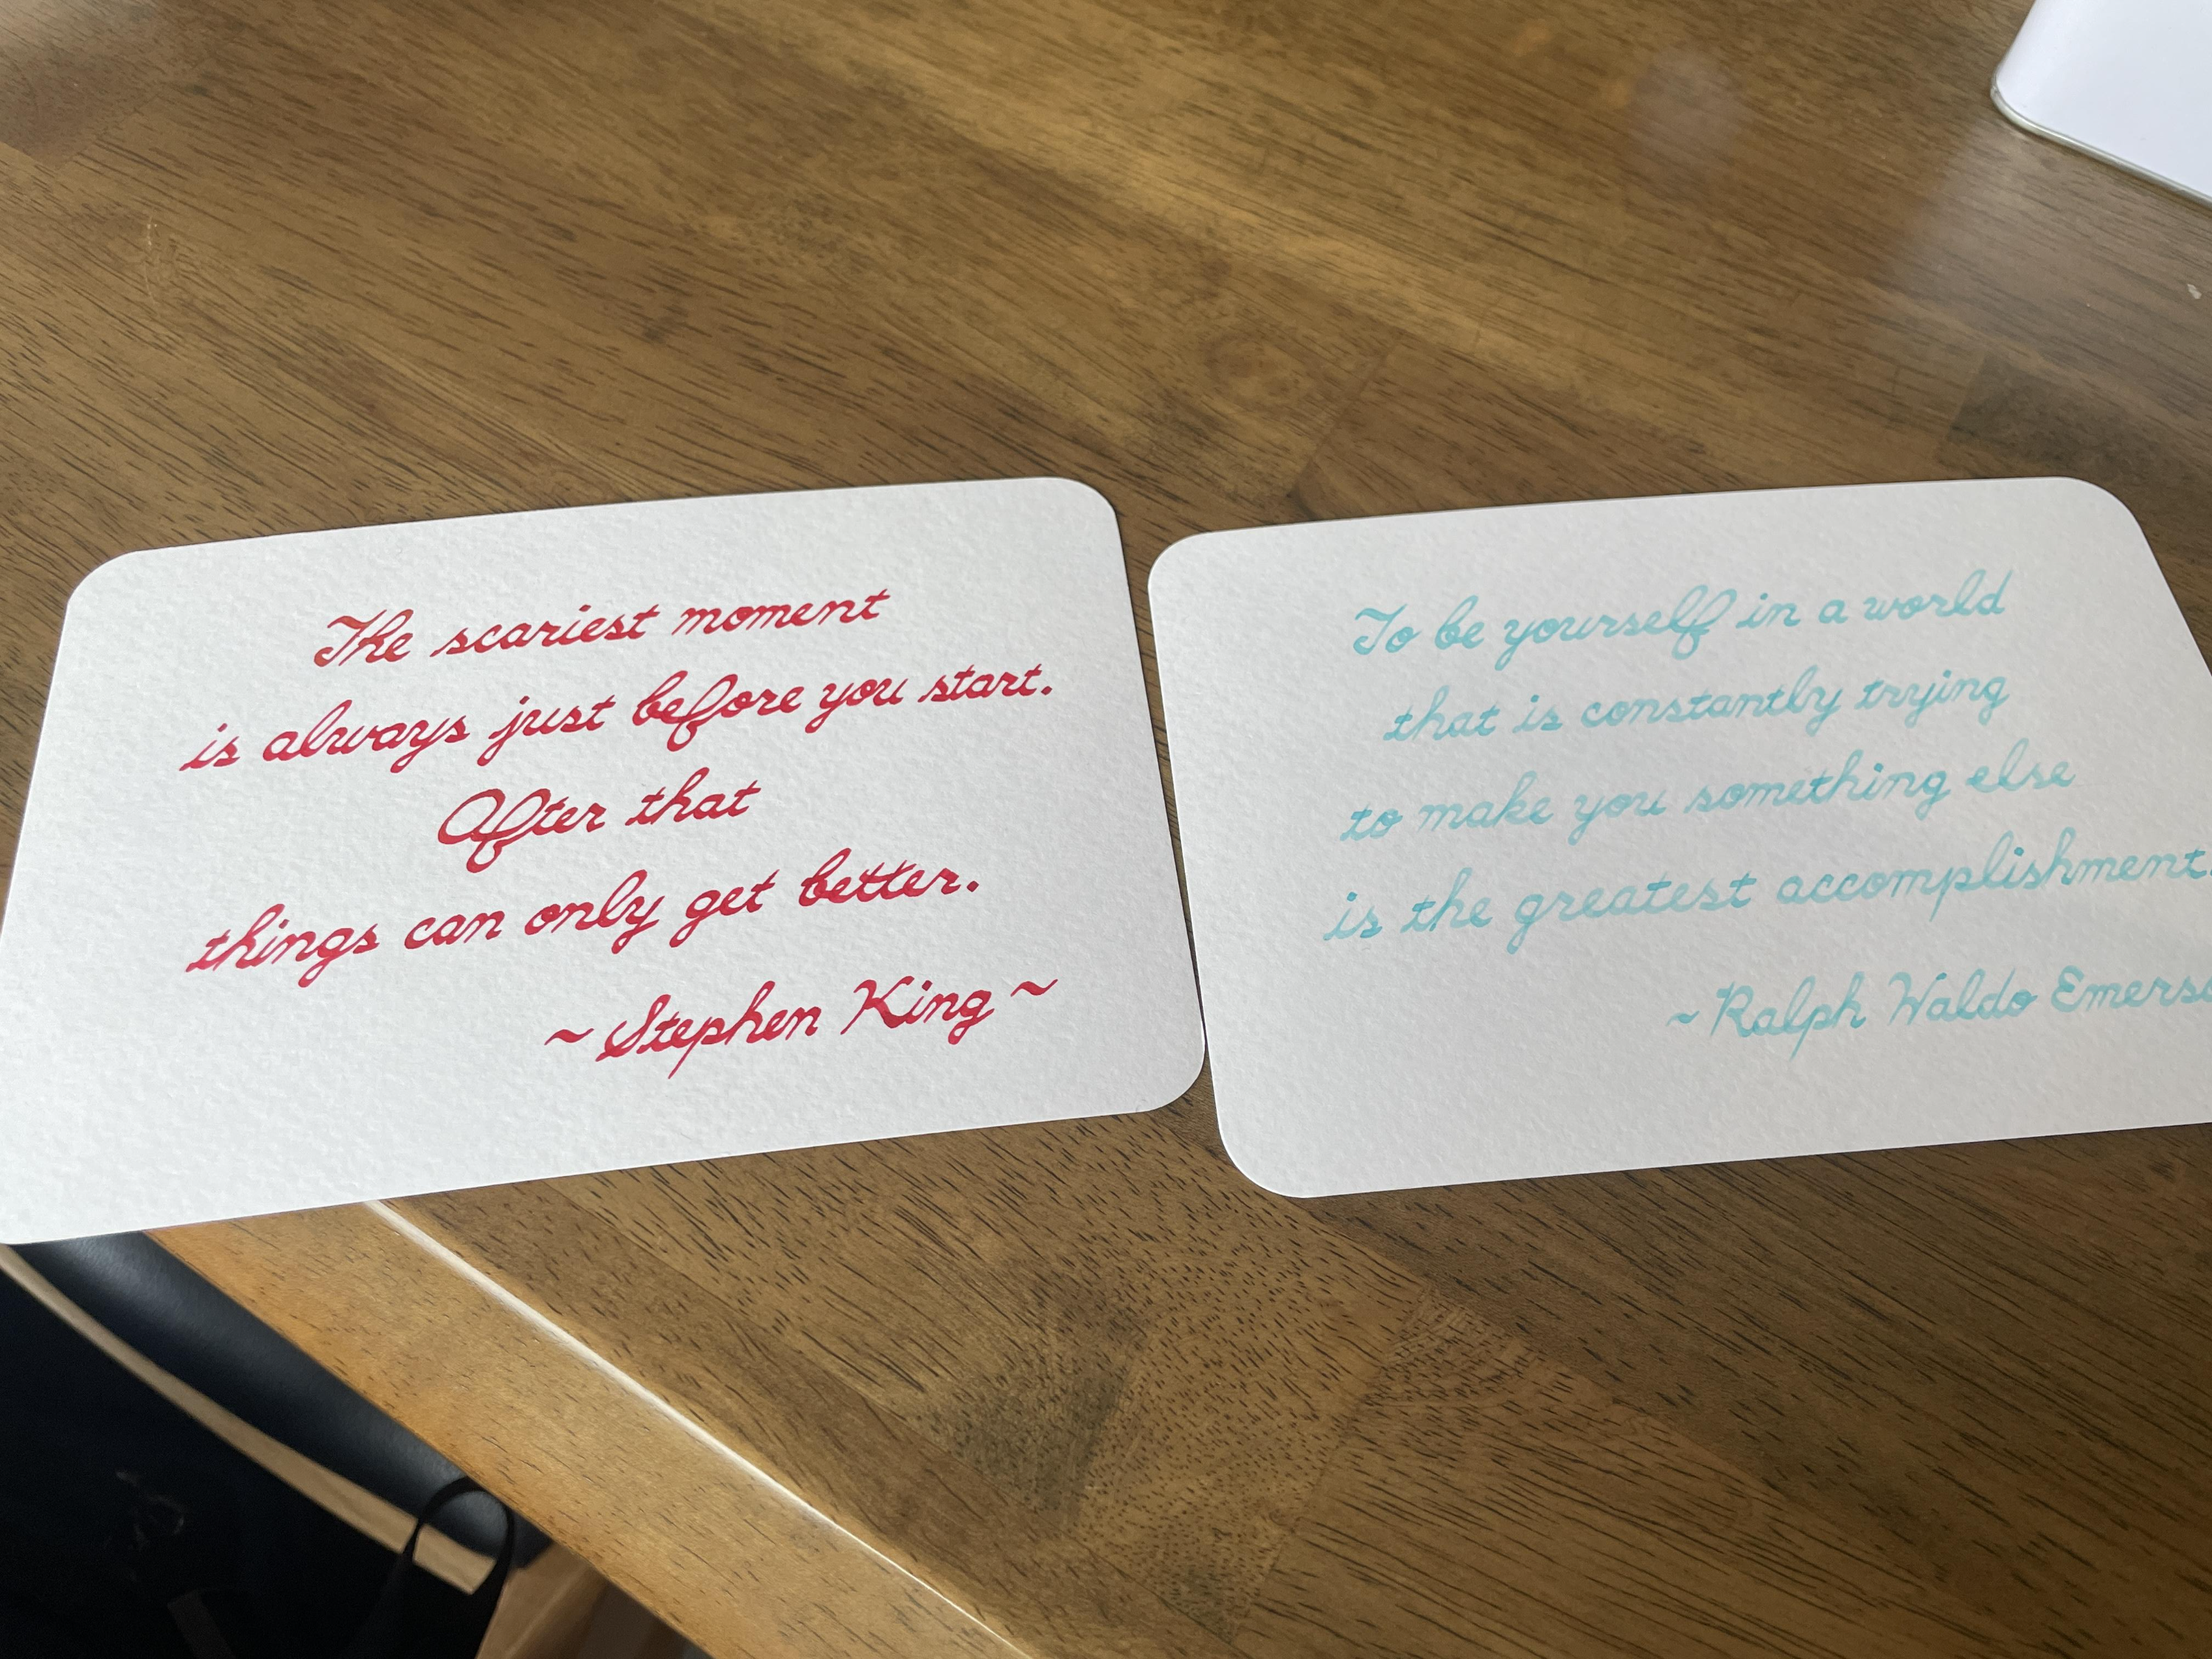 The scariest moment
is always just before you start.
After that
things can only get better.
~ Stephen King ~
To be yourself in a world
that is constantly trying
to make you something else
is the greatest accomplishment.
~ Ralph Waldo Emerso